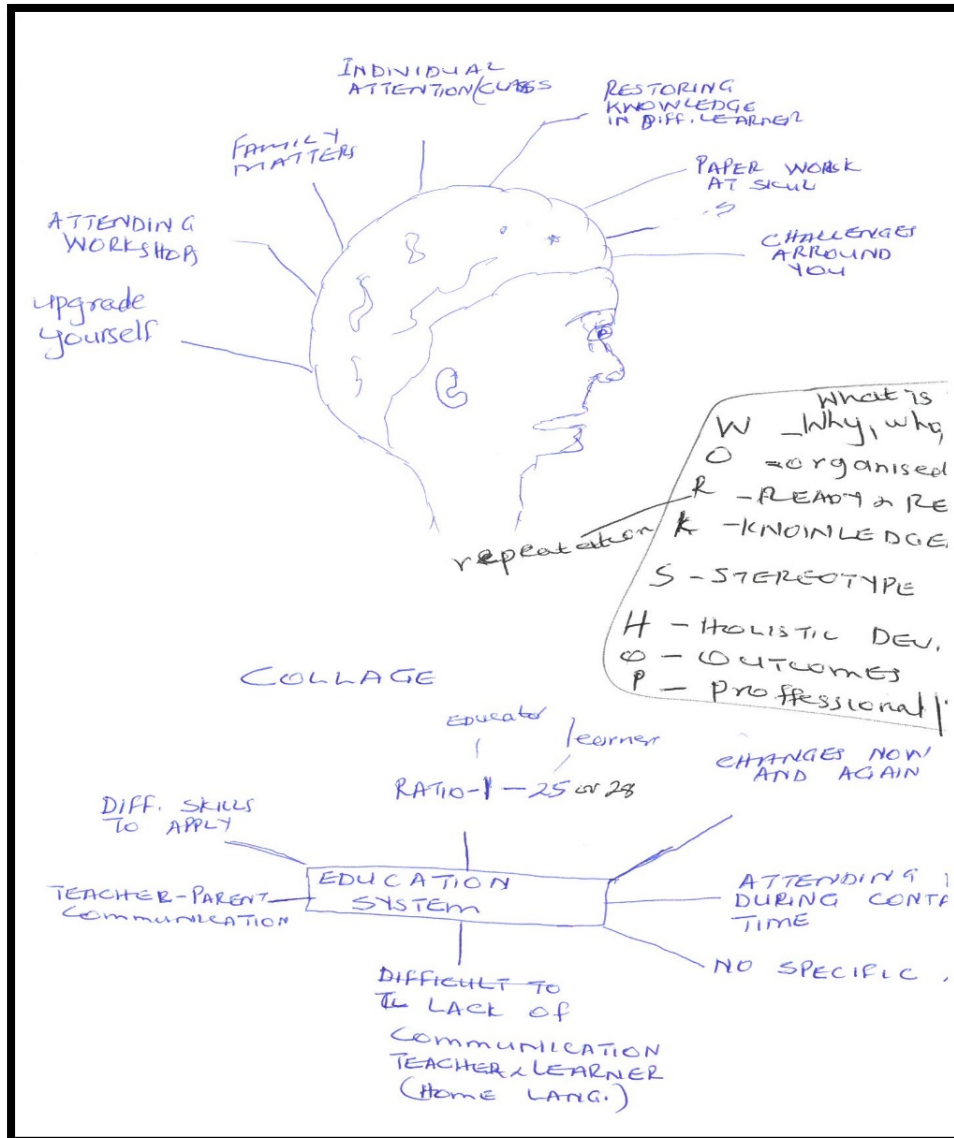 INDIVIDUAL
ATTENTION/CLASS
RESTORING
KNOWLEDGE
IN DIFF. LEARNER
FAMILY
MATTERS
PAPER WORK
AT SKUL
ATTENDING
WORKSHOPS
CHALLENGES
ARROUND
YOU
upgrade
yourself
What is
W - Why, who,
O - organised
R - READY & RE
repeatation
K - KNOWLEDGE
S - STEREOTYPE
H - HOLISTIC DEV.
O - OUTCOMES
P - Proffessional
COLLAGE
Educator
learner
RATIO - 1 - 25 or 28
CHANGES NOW
AND AGAIN
DIFF. SKILLS
TO APPLY
EDUCATION
SYSTEM
TEACHER-PARENT
COMMUNICATION
ATTENDING
DURING CONTA
TIME
NO SPECIFIC
DIFFICULT TO
LACK OF
COMMUNICATION
TEACHER & LEARNER
(HOME LANG.)